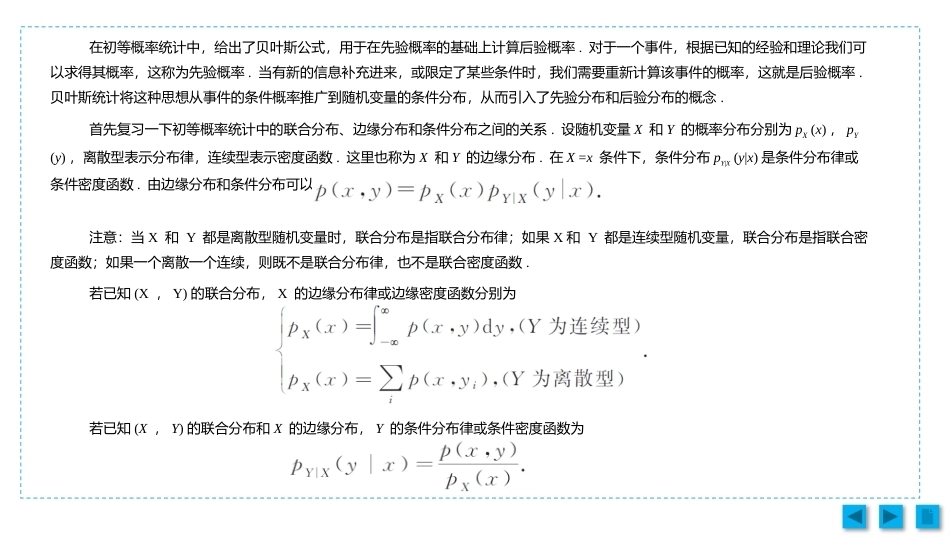 在初等概率统计中，给出了贝叶斯公式，用于在先验概率的基础上计算后验概率 . 对于一个事件，根据已知的经验和理论我们可
以求得其概率，这称为先验概率 . 当有新的信息补充进来，或限定了某些条件时，我们需要重新计算该事件的概率，这就是后验概率 .
贝叶斯统计将这种思想从事件的条件概率推广到随机变量的条件分布，从而引入了先验分布和后验分布的概念 .
首先复习一下初等概率统计中的联合分布、边缘分布和条件分布之间的关系 . 设随机变量 X 和 Y 的概率分布分别为 p_X (x) ， p_Y
(y) ，离散型表示分布律，连续型表示密度函数 . 这里也称为 X 和 Y 的边缘分布 . 在 X =x 条件下，条件分布 p_{Y|X} (y|x) 是条件分布律或
条件密度函数 . 由边缘分布和条件分布可以 p(x,y)=p_X(x)p_{Y|X}(y|x).
注意：当 X 和 Y 都是离散型随机变量时，联合分布是指联合分布律；如果 X 和 Y 都是连续型随机变量，联合分布是指联合密
度函数；如果一个离散一个连续，则既不是联合分布律，也不是联合密度函数 .
若已知 (X ， Y) 的联合分布， X 的边缘分布律或边缘密度函数分别为
p_X(x)=∫_{-∞}^{∞} p(x,y)dy,(Y 为连续型)
p_X(x)=∑_i p(x,y_i),(Y 为离散型)
.
若已知 (X ， Y) 的联合分布和 X 的边缘分布， Y 的条件分布律或条件密度函数为
p_{Y|X}(y | x)=p(x,y)/p_X(x).